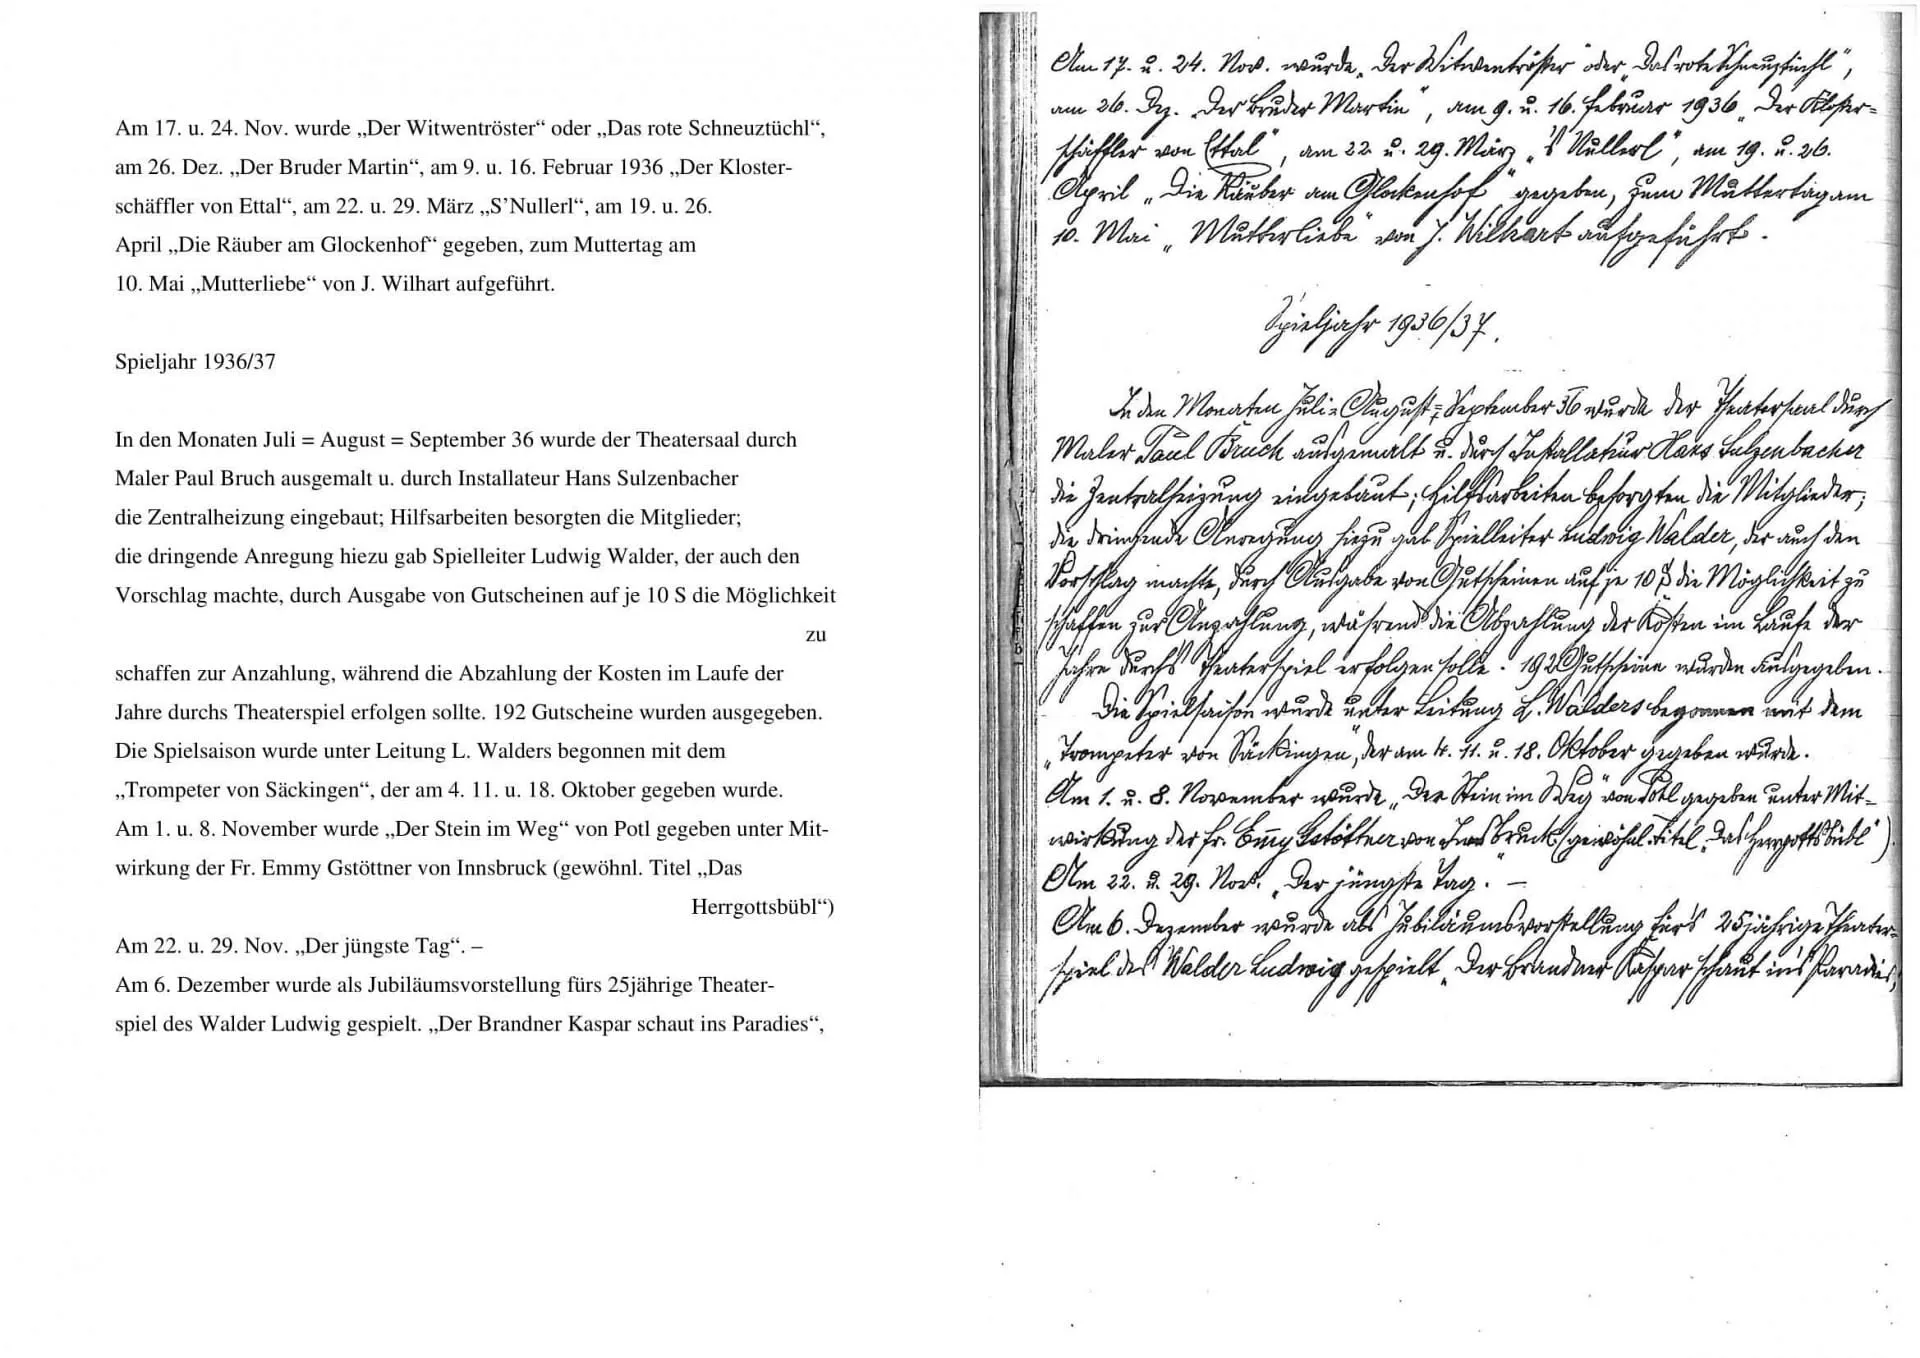 Am 17. u. 24. Nov. wurde „Der Witwentröster“ oder „Das rote Schneuztüchl“,
am 26. Dez. „Der Bruder Martin“, am 9. u. 16. Februar 1936 „Der Kloster-
schäffler von Ettal“, am 22. u. 29. März „S’Nullerl“, am 19. u. 26.
April „Die Räuber am Glockenhof“ gegeben, zum Muttertag am
10. Mai „Mutterliebe“ von J. Wilhart aufgeführt.
Spieljahr 1936/37
In den Monaten Juli = August = September 36 wurde der Theatersaal durch
Maler Paul Bruch ausgemalt u. durch Installateur Hans Sulzenbacher
die Zentralheizung eingebaut; Hilfsarbeiten besorgten die Mitglieder;
die dringende Anregung hiezu gab Spielleiter Ludwig Walder, der auch den
Vorschlag machte, durch Ausgabe von Gutscheinen auf je 10 S die Möglichkeit
zu
schaffen zur Anzahlung, während die Abzahlung der Kosten im Laufe der
Jahre durchs Theaterspiel erfolgen sollte. 192 Gutscheine wurden ausgegeben.
Die Spielsaison wurde unter Leitung L. Walders begonnen mit dem
„Trompeter von Säckingen“, der am 4. 11. u. 18. Oktober gegeben wurde.
Am 1. u. 8. November wurde „Der Stein im Weg“ von Potl gegeben unter Mit-
wirkung der Fr. Emmy Gstöttner von Innsbruck (gewöhnl. Titel „Das
Herrgottsbübl“)
Am 22. u. 29. Nov. „Der jüngste Tag“. –
Am 6. Dezember wurde als Jubiläumsvorstellung fürs 25jährige Theater-
spiel des Walder Ludwig gespielt. „Der Brandner Kaspar schaut ins Paradies“,
Am 17. u. 24. Nov. wurde „Der Witwentröster“ oder „Das rote Schneuztüchl“,
am 26. Dez. „Der Bruder Martin“, am 9. u. 16. Februar 1936 „Der Kloster=
schäffler von Ettal“, am 22. u. 29. März „'s Nullerl“, am 19. u. 26.
April „Die Räuber am Glockenhof“ gegeben, zum Muttertag am
10. Mai „Mutterliebe“ von J. Wilhart aufgeführt.
Spieljahr 1936/37.
In den Monaten Juli = August = September 36 wurde der Theatersaal durch
Maler Paul Bruch ausgemalt u. durch Installateur Hans Sulzenbacher
die Zentralheizung eingebaut; Hilfsarbeiten besorgten die Mitglieder;
die dringende Anregung hiezu gab Spielleiter Ludwig Walder, der auch den
Vorschlag machte, durch Ausgabe von Gutscheinen auf je 10 S die Möglichkeit zu
schaffen zur Anzahlung, während die Abzahlung der Kosten im Laufe der
Jahre durchs Theaterspiel erfolgen solle. 192 Gutscheine wurden ausgegeben.
Die Spielsaison wurde unter Leitung L. Walders begonnen mit dem
„Trompeter von Säckingen“, der am 4. 11. u. 18. Oktober gegeben wurde.
Am 1. u. 8. November wurde „Der Stein im Weg“ von Potl gegeben unter Mit=
wirkung der Fr. Em̅y Gstöttner von Innsbruck (gewöhnl. Titel „Das Herrgottsbübl“)
Am 22. u. 29. Nov. „Der jüngste Tag. –
Am 6. Dezember wurde als Jubiläumsvorstellung fürs 25jährige Theater=
spiel des Walder Ludwig gespielt „Der Brandner Kaspar schaut ins Paradies,